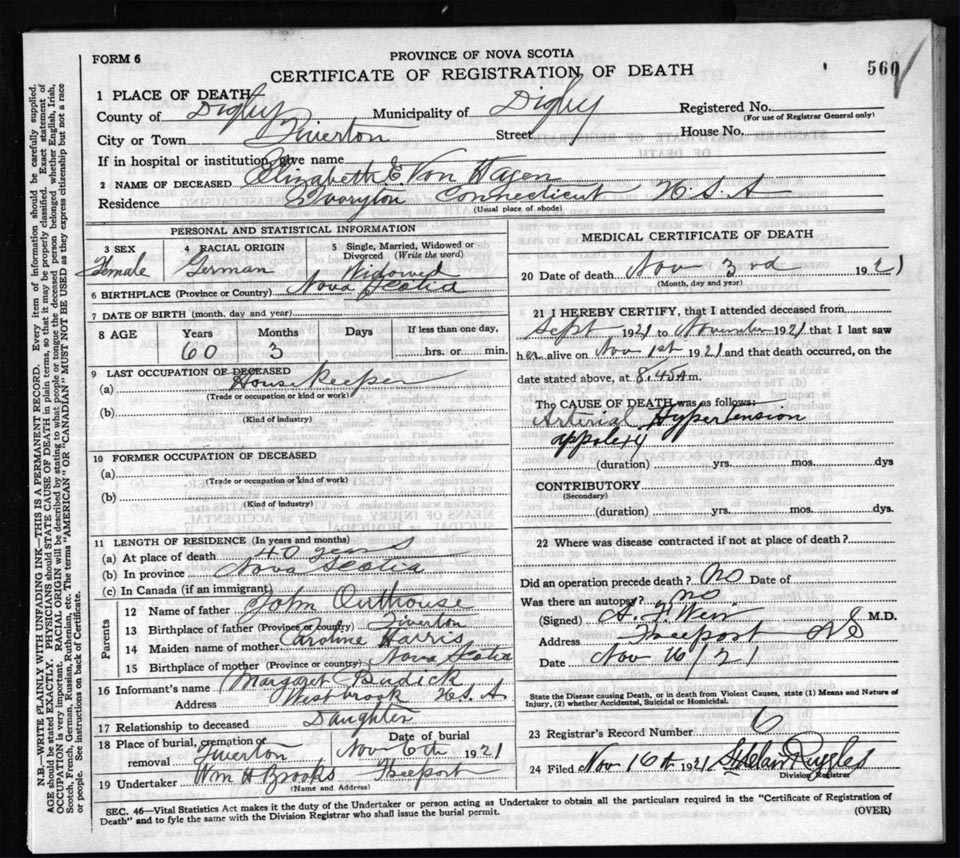 FORM 6
PROVINCE OF NOVA SCOTIA
CERTIFICATE OF REGISTRATION OF DEATH
560
1 PLACE OF DEATH
County of Digby Municipality of Digby Registered No.
(For use of Registrar General only)
City or Town Tiverton Street House No.
If in hospital or institution, give name
2 NAME OF DECEASED Elizabeth E Von Hagen
Residence Ivoryton Connecticut U.S.A
(Usual place of abode)
PERSONAL AND STATISTICAL INFORMATION
3 SEX 4 RACIAL ORIGIN 5 Single, Married, Widowed or Divorced (Write the word)
Female German Widowed
6 BIRTHPLACE (Province or Country) Nova Scotia
7 DATE OF BIRTH (month, day and year)
8 AGE Years Months Days If less than one day,
60 3 hrs. or min.
9 LAST OCCUPATION OF DECEASED
(a) House Keeper
(Trade or occupation or kind or work)
(b)
(Kind of industry)
10 FORMER OCCUPATION OF DECEASED
(a)
(Trade or occupation or kind of work)
(b)
(Kind of industry)
11 LENGTH OF RESIDENCE (In years and months)
(a) At place of death 40 years
(b) In province Nova Scotia
(c) In Canada (if an immigrant)
Parents
12 Name of father John Outhouse
13 Birthplace of father (Province or country) Tiverton
14 Maiden name of mother Caroline Harris
15 Birthplace of mother (Province or country) Nova Scotia
16 Informant's name Margaret
Address Westbrook U.S.A
17 Relationship to deceased Daughter
18 Place of burial, cremation or removal Tiverton Date of burial Nov 6th 1921
19 Undertaker Wm H Brooks Freeport
(Name and Address)
MEDICAL CERTIFICATE OF DEATH
20 Date of death Nov 3rd 1921
(Month, day and year)
21 I HEREBY CERTIFY, that I attended deceased from
Sept 1921 to November 1921 that I last saw
her alive on Nov 1st 1921 and that death occurred, on the
date stated above, at 8.45 A m.
The CAUSE OF DEATH was as follows:
Arterial Hypertension
(duration) yrs. mos. dys
CONTRIBUTORY
(Secondary)
(duration) yrs. mos. dys.
22 Where was disease contracted if not at place of death?
Did an operation precede death? no Date of
Was there an autopsy? no
(Signed) Weir M.D.
Address Freeport NS
Date Nov 16/21
State the Disease causing Death, or in death from Violent Causes, state (1) Means and Nature of Injury, (2) whether Accidental, Suicidal or Homicidal.
23 Registrar's Record Number 6
24 Filed Nov 16th 1921 Ruggles
Division Registrar
SEC. 46—Vital Statistics Act makes it the duty of the Undertaker or person acting as Undertaker to obtain all the particulars required in the "Certificate of Registration of
Death" and to fyle the same with the Division Registrar who shall issue the burial permit. (OVER)
N.B.—WRITE PLAINLY WITH UNFADING INK—THIS IS A PERMANENT RECORD. Every item of information should be carefully supplied.
AGE should be stated EXACTLY. PHYSICIANS should STATE CAUSE OF DEATH in plain terms, so that it may be properly classified. Exact statement of
OCCUPATION is very important. RACIAL ORIGIN will be described by stating to what people or tongue the deceased person belonged whether English, Irish,
Scotch, French, German, Russian, Ruthenian, etc. The terms "AMERICAN" OR "CANADIAN" MUST NOT BE USED as they express citizenship but not a race
or people. See instructions on back of Certificate.